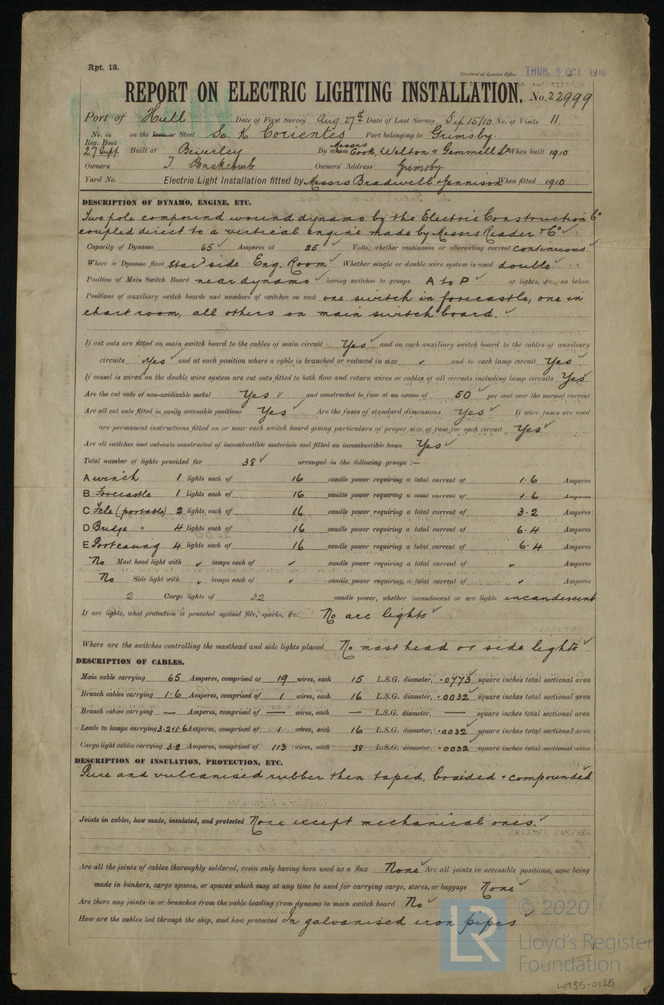 Rpt. 13.
Received at London Office THUR. 6 OCT 1910
REPORT ON ELECTRIC LIGHTING INSTALLATION. No. 22999
Port of Hull Date of First Survey Aug 27th Date of Last Survey Sep 15/10 No. of Visits 11
No. in Reg. Book 27 Supt on the Iron or Steel Sc. K Corientes Port belonging to Grimsby
Built at Beverley By whom Messrs Cook, Welton & Gemmell Ld When built 1910
Owners T Baskcomb Owners' Address Grimsby
Yard No. Electric Light Installation fitted by Messrs Bradwell & Gennison When fitted 1910
DESCRIPTION OF DYNAMO, ENGINE, ETC.
Two pole compound wound dynamo by the Electric Construction Co
coupled direct to a vertical engine made by Messrs Reader & Co
Capacity of Dynamo 65 Amperes at 25 Volts, whether continuous or alternating current continuous
Where is Dynamo fixed Star'd side Eng. Room Whether single or double wire system is used double
Position of Main Switch Board near dynamo having switches to groups A to P of lights, &c., as below
Positions of auxiliary switch boards and numbers of switches on each one switch in forecastle, one in
chart room, all others on main switch board.
If cut outs are fitted on main switch board to the cables of main circuit Yes and on each auxiliary switch board to the cables of auxiliary
circuits Yes and at each position where a cable is branched or reduced in size and to each lamp circuit Yes
If vessel is wired on the double wire system are cut outs fitted to both flow and return wires or cables of all circuits including lamp circuits Yes
Are the cut outs of non-oxidizable metal Yes and constructed to fuse at an excess of 50 per cent over the normal current
Are all cut outs fitted in easily accessible positions Yes Are the fuses of standard dimensions Yes If wire fuses are used
are permanent instructions fitted on or near each switch board giving particulars of proper size of fuse for each circuit Yes
Are all switches and cut-outs constructed of incombustible materials and fitted on incombustible bases Yes
Total number of lights provided for 38 arranged in the following groups :—
A winch 1 lights each of 16 candle power requiring a total current of 1.6 Amperes
B Forecastle 1 lights each of 16 candle power requiring a total current of 1.6 Amperes
C Fele (portable) 2 lights each of 16 candle power requiring a total current of 3.2 Amperes
D Bridge " 4 lights each of 16 candle power requiring a total current of 6.4 Amperes
E Port casing 4 lights each of 16 candle power requiring a total current of 6.4 Amperes
No Mast head light with lamps each of candle power requiring a total current of Amperes
No Side light with lamps each of candle power, requiring a total current of Amperes
2 Cargo lights of 32 candle power, whether incandescent or arc lights incandescent
If arc lights, what protection is provided against fire, sparks, &c. No arc lights
Where are the switches controlling the masthead and side lights placed No mast head or side lights
DESCRIPTION OF CABLES.
Main cable carrying 65 Amperes, comprised of 19 wires, each 15 L.S.G. diameter, .0773 square inches total sectional area
Branch cables carrying 1.6 Amperes, comprised of 1 wires, each 16 L.S.G. diameter, .0032 square inches total sectional area
Branch cables carrying — Amperes, comprised of — wires, each — L.S.G. diameter, square inches total sectional area
Leads to lamps carrying 3.2 & 1.6 Amperes, comprised of 1 wires, each 16 L.S.G. diameter, .0032 square inches total sectional area
Cargo light cables carrying 3.2 Amperes, comprised of 113 wires, each 38 L.S.G. diameter, .0032 square inches total sectional area
DESCRIPTION OF INSULATION, PROTECTION, ETC.
Pure and vulcanised rubber then taped, braided & compounded
Joints in cables, how made, insulated, and protected None except mechanical ones.
Are all the joints of cables thoroughly soldered, resin only having been used as a flux None Are all joints in accessible positions, none being
made in bunkers, cargo spaces, or spaces which may at any time be used for carrying cargo, stores, or baggage None
Are there any joints in or branches from the cable leading from dynamo to main switch board No
How are the cables led through the ship, and how protected In galvanised iron pipes
LR © 2020
Lloyd's Register
Foundation
W935-0125